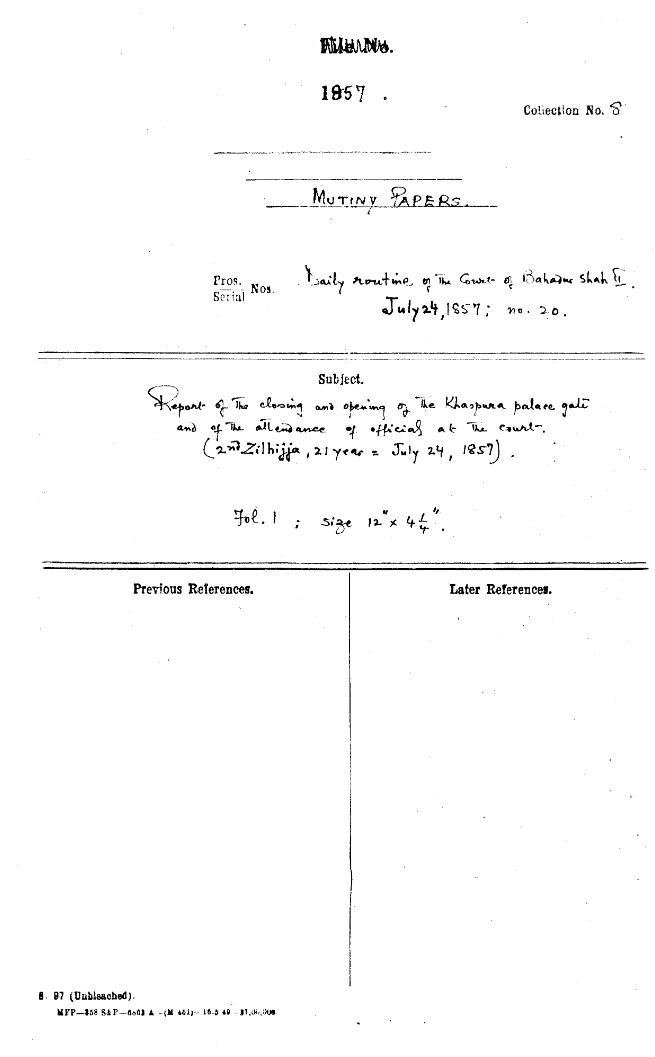 1857 .
Collection No. 8
MUTINY PAPERS.
Pros. Serial Nos. Daily routine of the Court of Bahadur Shah II.
July 24, 1857; no. 20.
Subject.
Report of the closing and opening of the Khaspura palace gate
and of the attendance of official at the court.
(2nd Zilhijja, 21 year = July 24, 1857).
Fol. 1 ; size 12" x 4 1/4".
Previous References.
Later References.
S. 97 (Unbleached).